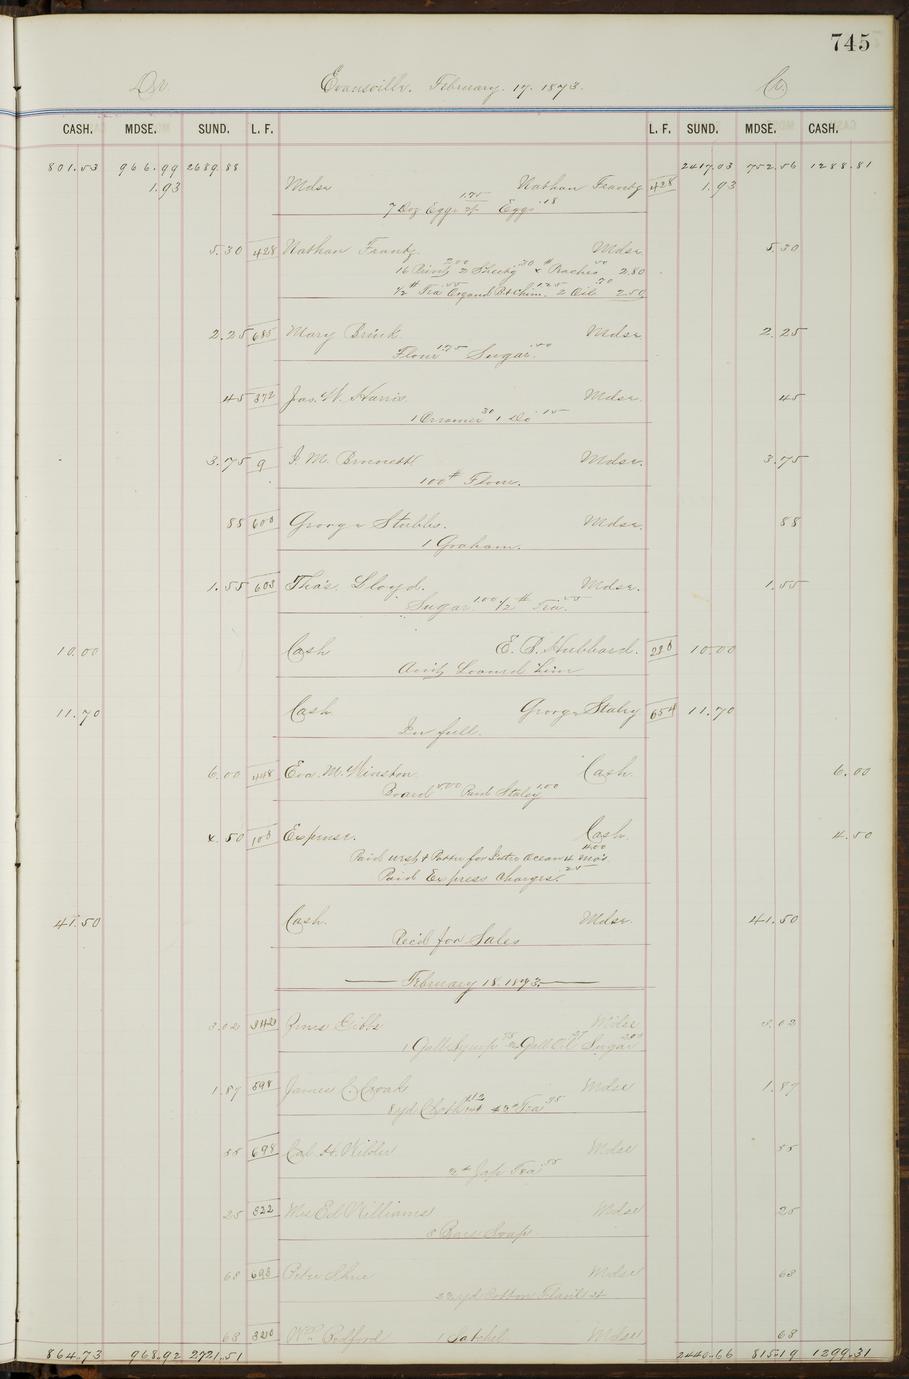 745
Dr. Evansville. February. 17. 1873. Cr
CASH. MDSE. SUND. L. F. L. F. SUND. MDSE. CASH.
801.53 966.99 2689.88 2417.03 752.56 1288.81
1.93 Mdse Nathan Frantz 428 1.93
7 Doz Eggs 1.75 Eggs .18
5.30 428 Nathan Frantz Mdse 5.30
16 Prints 2.00 2 Sheetg 30 4# Peaches 50 2.80
½# Tea 55 1.25 2 Oil .70 2.50
2.25 685 Mary Brink Mdse 2.25
Flour 1.75 Sugar .50
45 372 Jas. W. Harris Mdse. 45
1 Creamer 30 1 Do 15
3.75 9 J. M. Bennett Mdse. 3.75
100# Flour.
88 600 George Stubbs. Mdse. 88
1 Graham.
1.55 603 Thos. Lloyd. Mdse. 1.55
Sugar 1.00 ½# Tea .55
10.00 Cash E. P. Hubbard. 230 10.00
Amt Loaned him
11.70 Cash George Staley 654 11.70
In full.
6.00 448 Eva. M. Winston. Cash 6.00
Board 5.00 Paid Staley 1.00
4.50 100 Expense. Cash 4.50
Paid for Inter Ocean 4 mo's
Paid Express Charges. 25
41.50 Cash Mdse. 41.50
Rec'd for Sales
February 18. 1873.
3.02 342 Gibbs Mdse 3.02
1 Gall Syrup Gall Oil Sugar
1.87 598 James C. Croak Mdse 1.87
8 yd Cloth Tea
55 698 Cal. H. Wilder Mdse 55
Jap Tea 55
25 522 Mrs Ed Williams Mdse 25
Bars Soap
68 693 Peter Shue Mdse 68
yd Cotton Flanl
68 320 Wm Bedford 1 Satchel Mdse 68
864.73 968.92 2721.51 2440.66 815.19 1299.31